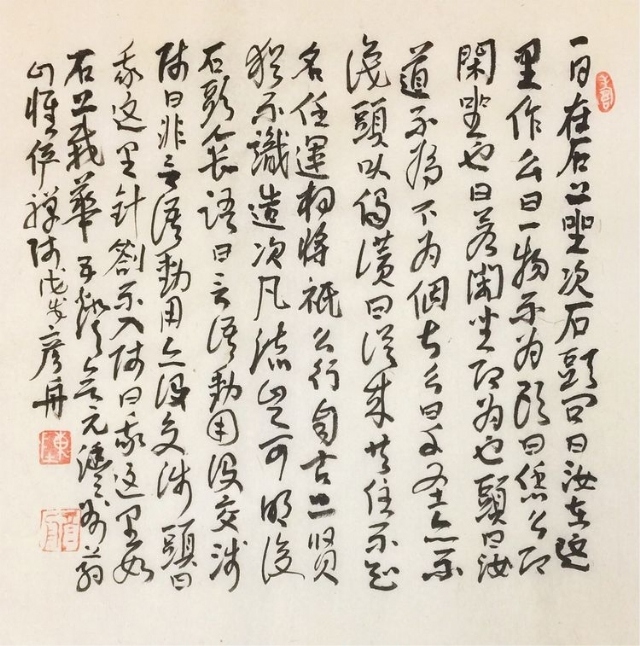 一日在石上坐次石頭问曰汝在这
里作么曰一物不为頭曰恁么即
閑坐也曰若閑坐即为也頭曰汝
道不为不为個甚么曰千圣亦不
識頭以偈讃曰從来共住不知
名任運相將祇么行自古上贤
猶不識造次凡流豈可明後
石頭垂語曰言語動用没交涉
师曰非言語動用亦没交涉頭曰
我这里針劄不入师曰我这里如
石上栽華五燈会元药
山惟俨禅师戊戌彦舟